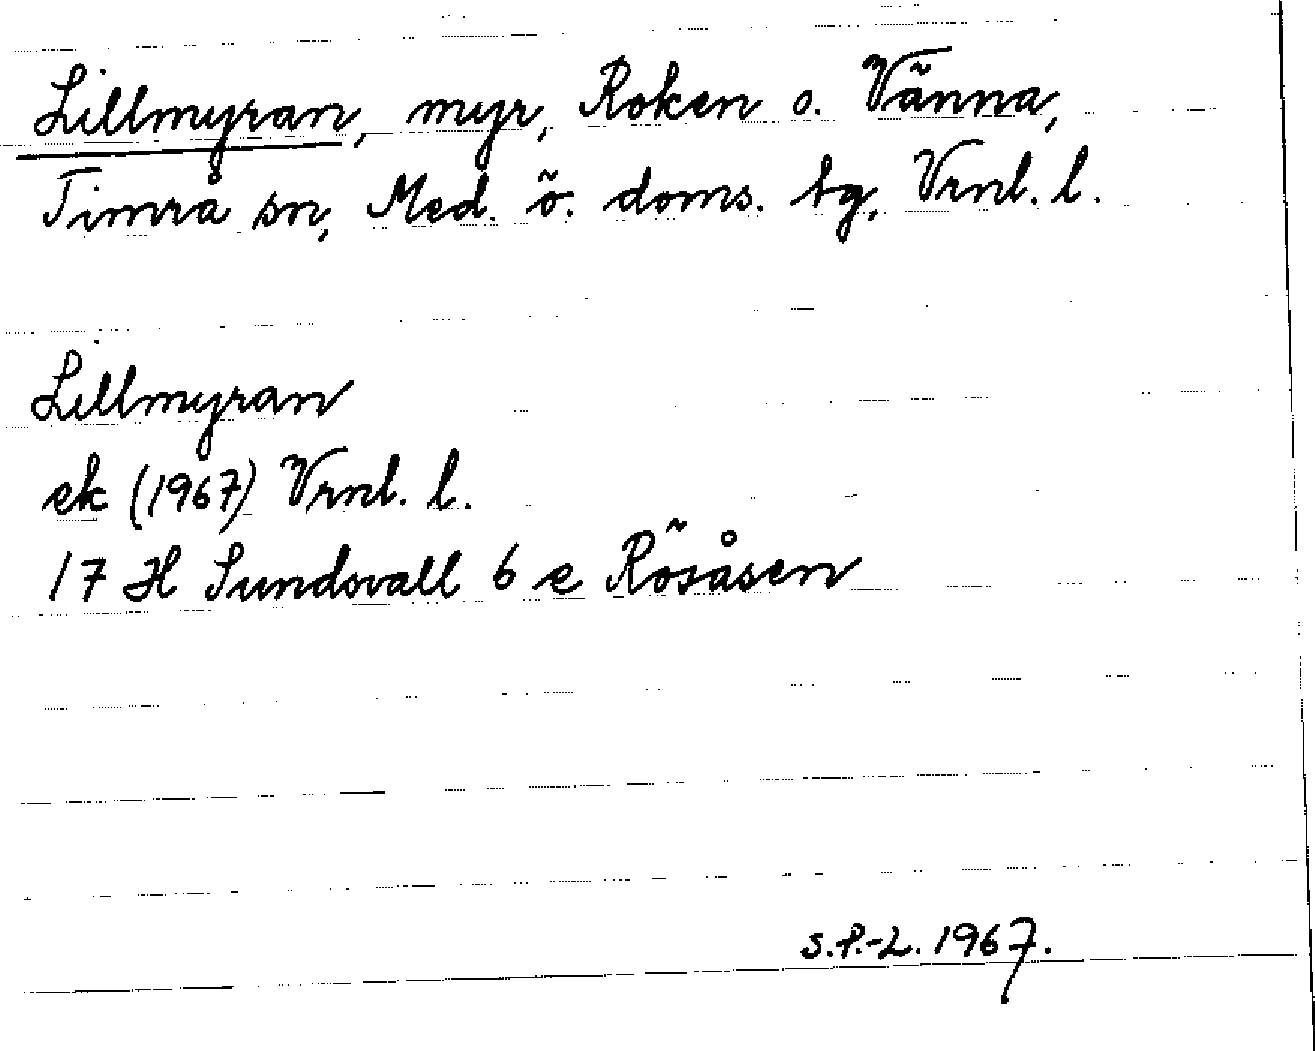 Lillmyran, myr, Roken o. Vänna,
Timrå sn, Med. ö. doms. tg, Vrnl. l.
Lillmyran
ek (1967) Vrnl. l.
17 H Sundsvall 6 e Rösåsen
S.P.-L. 1967.